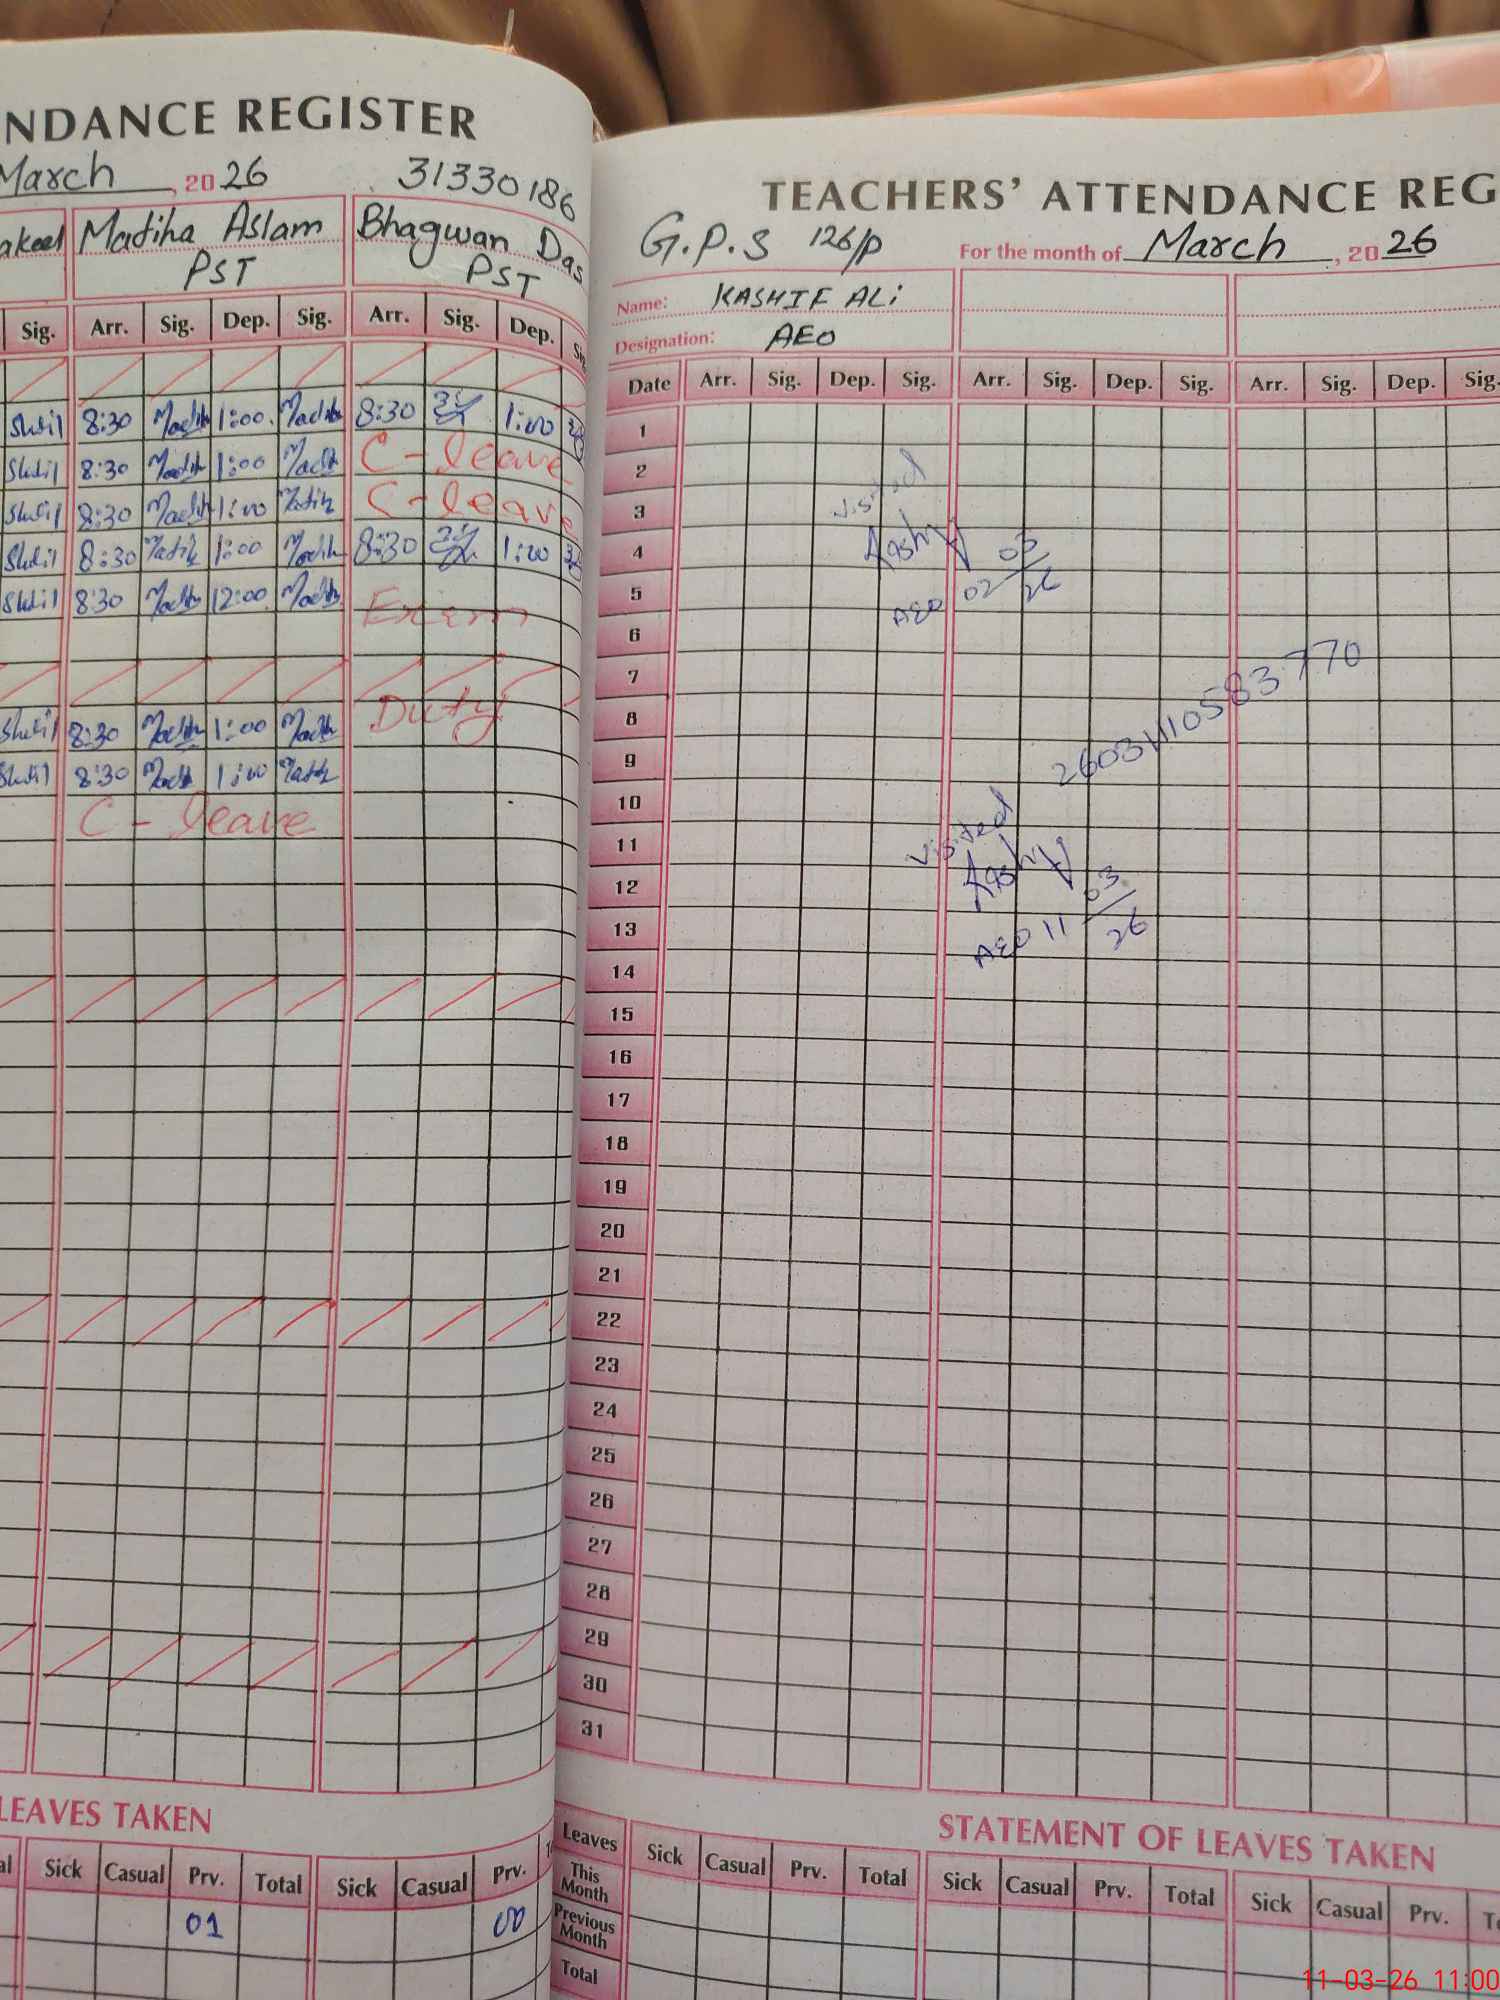 NDANCE REGISTER
March, 2026 31330186
akeel Madiha Aslam Bhagwan Das
PST PST
Sig. Arr. Sig. Dep. Sig. Arr. Sig. Dep.
8:30 1:00 8:30 1:00
8:30 1:00 C-leave
8:30 1:00 C-leave
8:30 1:00 8:30 1:00
8:30 12:00 Exem
8:30 1:00 Duty
8:30 1:00
C-leave
LEAVES TAKEN
Sick Casual Prv. Total Sick Casual Prv.
01 00
TEACHERS' ATTENDANCE REG
G.P.S 126/P For the month of March, 2026
Name: KASHIF ALi
Designation: AEO
Date Arr. Sig. Dep. Sig. Arr. Sig. Dep. Sig. Arr. Sig. Dep. Sig.
1
2
3
4
5
6
7
8
9
10
11
12
13
14
15
16
17
18
19
20
21
22
23
24
25
26
27
28
29
30
31
visited
AEO 02 03/26
26031110583770
visited
AEO 11 03/26
STATEMENT OF LEAVES TAKEN
Leaves Sick Casual Prv. Total Sick Casual Prv. Total Sick Casual Prv.
This Month
Previous Month
Total
11-03-26 11:00